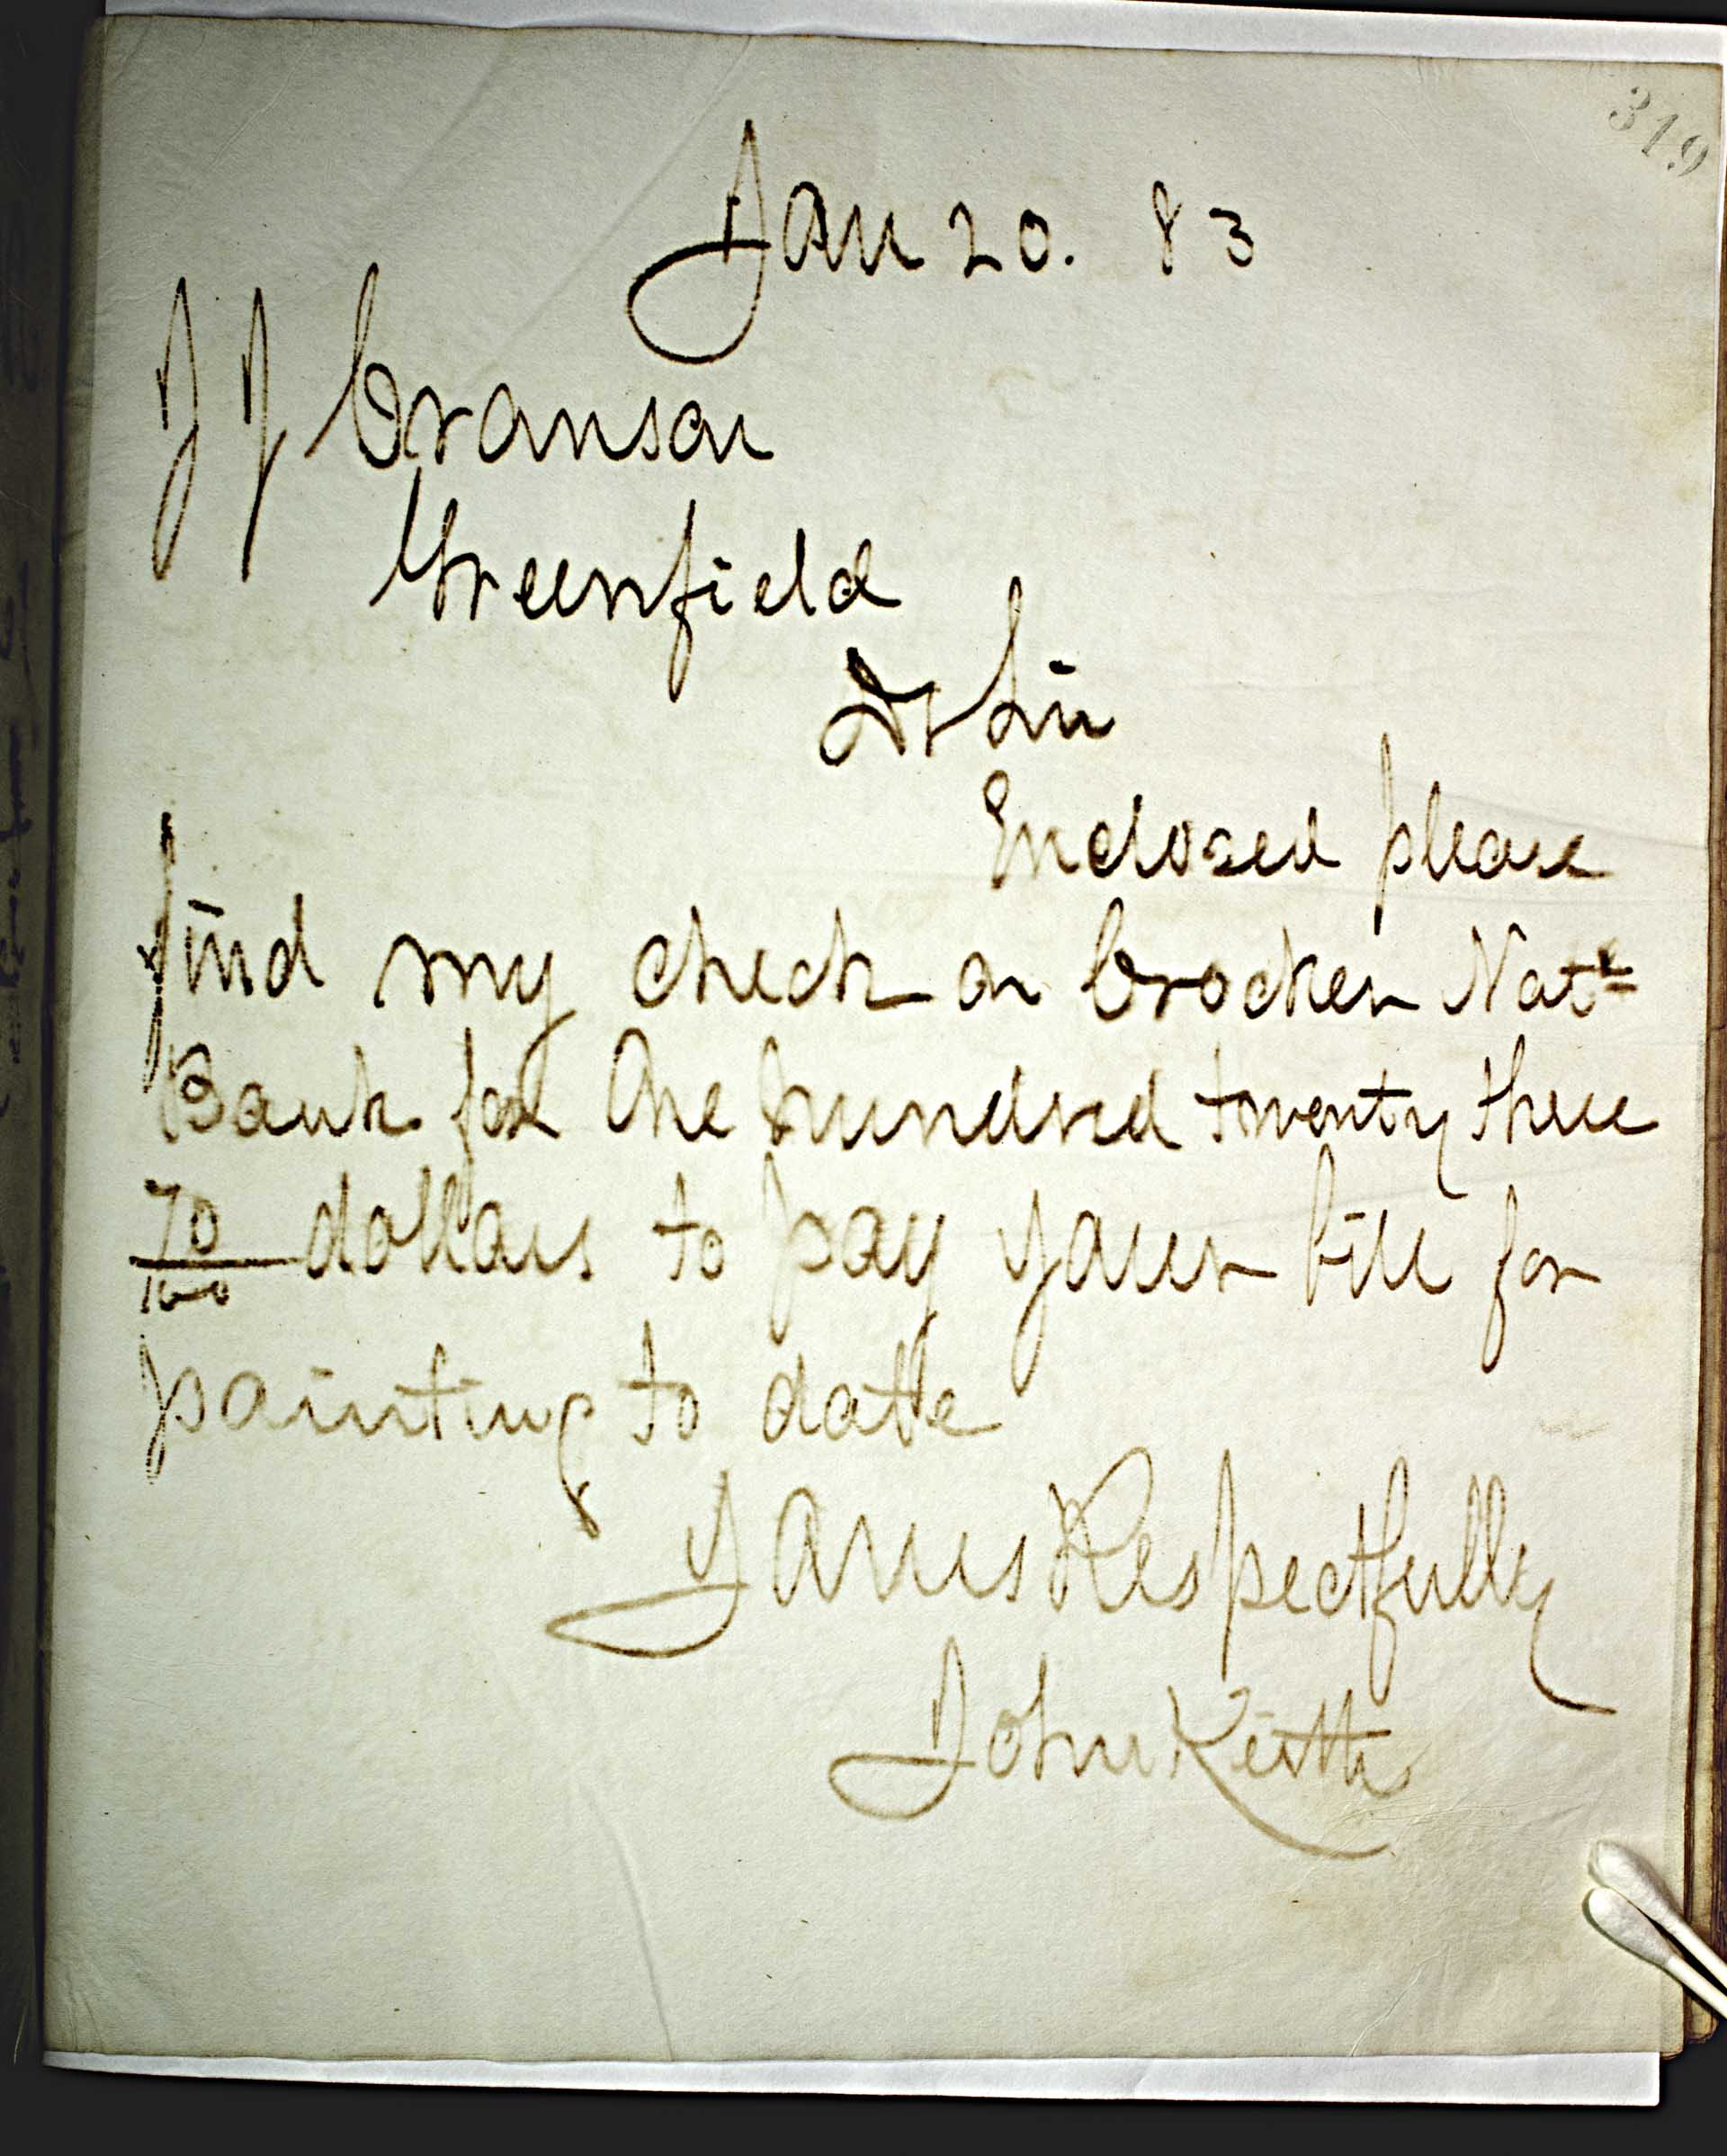 319
Jan 20. 83
J J Cranson
Greenfield
Dr Sir
Enclosed please
find my check on Crocker Natl
Bank for One hundred twenty three
70/100 dollars to pay your bill for
painting to date
Yours Respectfully
John Keith